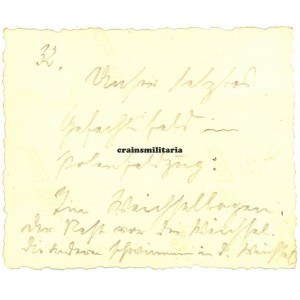 32.
Unser letztes
Gefechtsfeld im
crainsmilitaria
Polenfeldzug:
Im Weichselbogen.
Der Rest vor der Weichsel.
Die andern schwimmen in d. Weichsel